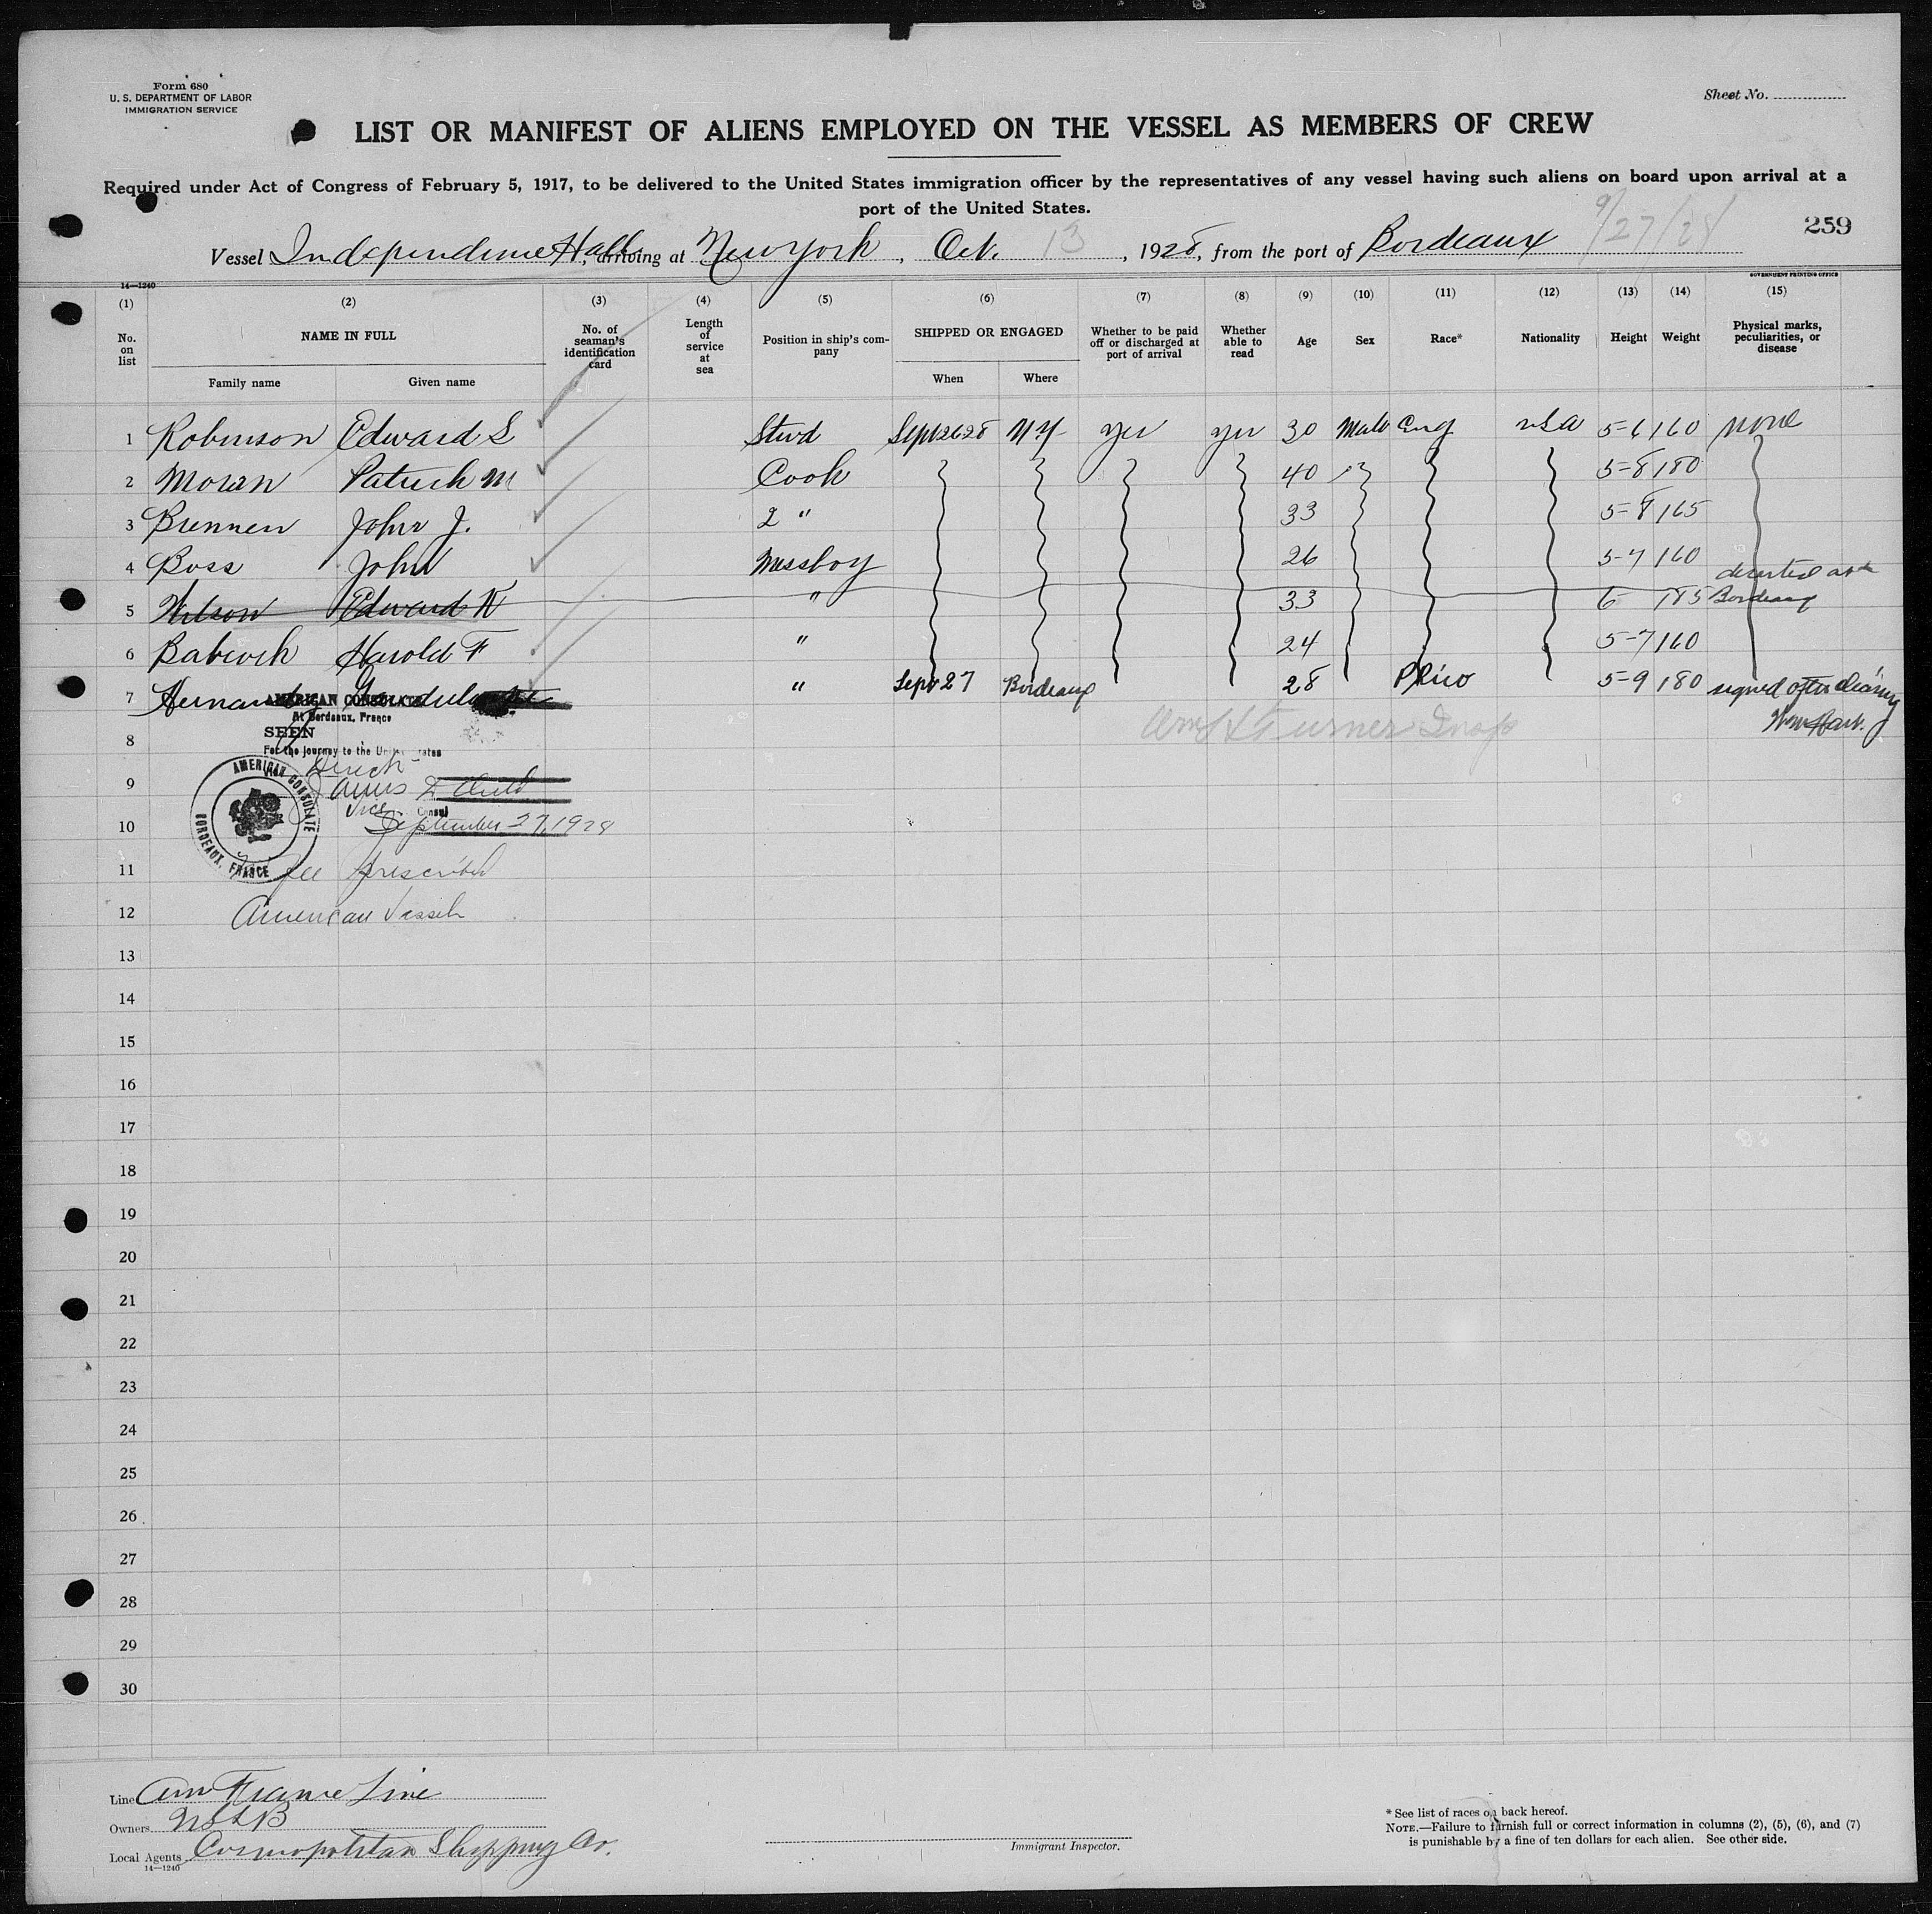 Form 680
U. S. DEPARTMENT OF LABOR
IMMIGRATION SERVICE
Sheet No.
LIST OR MANIFEST OF ALIENS EMPLOYED ON THE VESSEL AS MEMBERS OF CREW
Required under Act of Congress of February 5, 1917, to be delivered to the United States immigration officer by the representatives of any vessel having such aliens on board upon arrival at a
port of the United States.
9/27/28
259
Vessel Independence Hall, arriving at New York, Oct. 13, 1928, from the port of Bordeaux
14—1240
GOVERNMENT PRINTING OFFICE
(1) (2) (3) (4) (5) (6) (7) (8) (9) (10) (11) (12) (13) (14) (15)
No. on list
NAME IN FULL
Family name Given name
No. of seaman's identification card
Length of service at sea
Position in ship's company
SHIPPED OR ENGAGED
When Where
Whether to be paid off or discharged at port of arrival
Whether able to read
Age
Sex
Race*
Nationality
Height
Weight
Physical marks, peculiarities, or disease
1 Robinson Edward S Stwd Sept 2628 NY yes yes 30 Male Eng USA 5-6 160 none
2 Moran Patrick M Cook 40 5-8 180
3 Brennen John J. 2 " 33 5-8 165
4 Boss John Messboy 26 5-7 160
5 Wilson Edward K " 33 6 185 deserted at Bordeaux
6 Babcock Harold F " 24 5-7 160
7 " Sept 27 Bordeaux 28 P Rico 5-9 180 signed after clearing
AMERICAN CONSULATE
At Bordeaux, France
SEEN
For the journey to the United States
Direct
Vice Consul
September 27, 1928
AMERICAN CONSULATE
BORDEAUX, FRANCE
fee prescribed
American Vessel
Turner Insp
8
9
10
11
12
13
14
15
16
17
18
19
20
21
22
23
24
25
26
27
28
29
30
Line Am France Line
Owners USSB
Local Agents Cosmopolitan Shipping Co.
14—1240
Immigrant Inspector.
* See list of races on back hereof.
NOTE.—Failure to furnish full or correct information in columns (2), (5), (6), and (7)
is punishable by a fine of ten dollars for each alien. See other side.